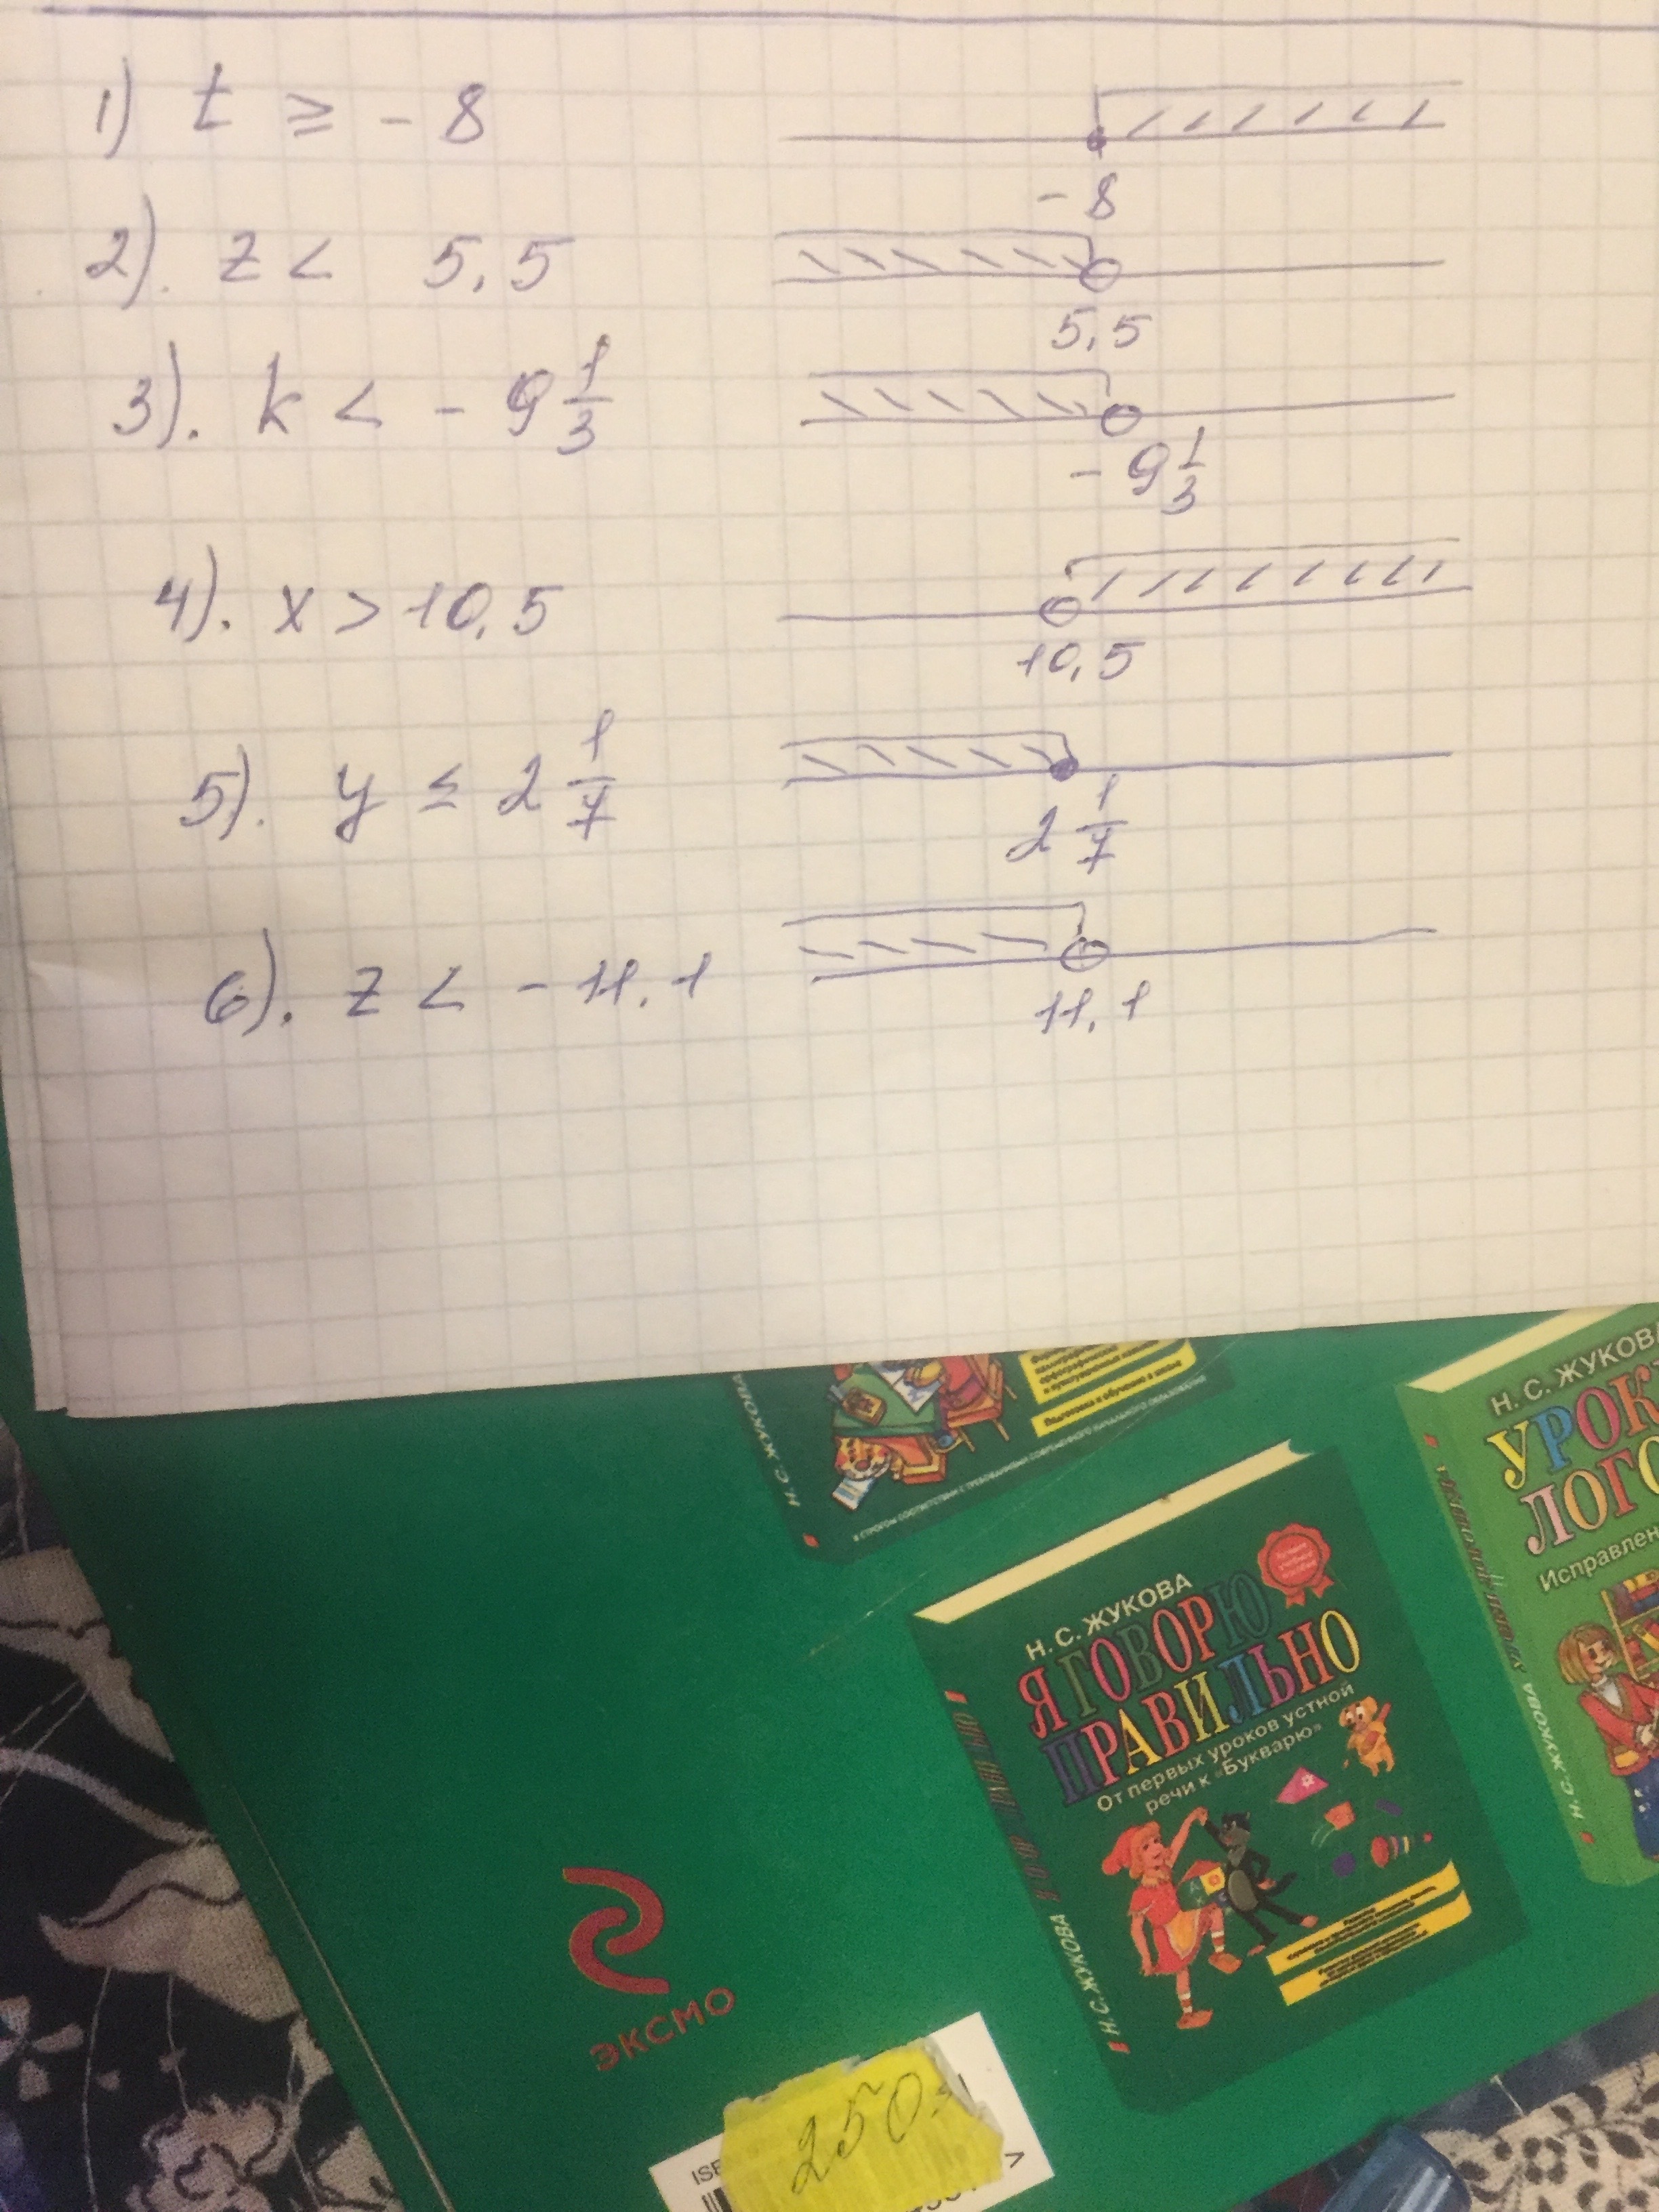 1) t ≥ - 8
- 8
2). z < 5,5
5,5
3). k < - 9 1/3
- 9 1/3
4). x > 10,5
10,5
5). y ≤ 2 1/7
2 1/7
6). z < - 11,1
11,1
Подготовка к обучению в школе
Н. С. ЖУКОВА
В СТРОГОМ СООТВЕТСТВИИ С ТРЕБОВАНИЯМИ СОВРЕМЕННОГО НАЧАЛЬНОГО ОБРАЗОВАНИЯ
Н. С. ЖУКОВА
УРОК
ЛОГО
Исправлен
Н. С. ЖУКОВА
Н. С. ЖУКОВА
Я ГОВОРЮ
ПРАВИЛЬНО
От первых уроков устной
речи к «Букварю»
Н. С. ЖУКОВА
ЭКСМО
250